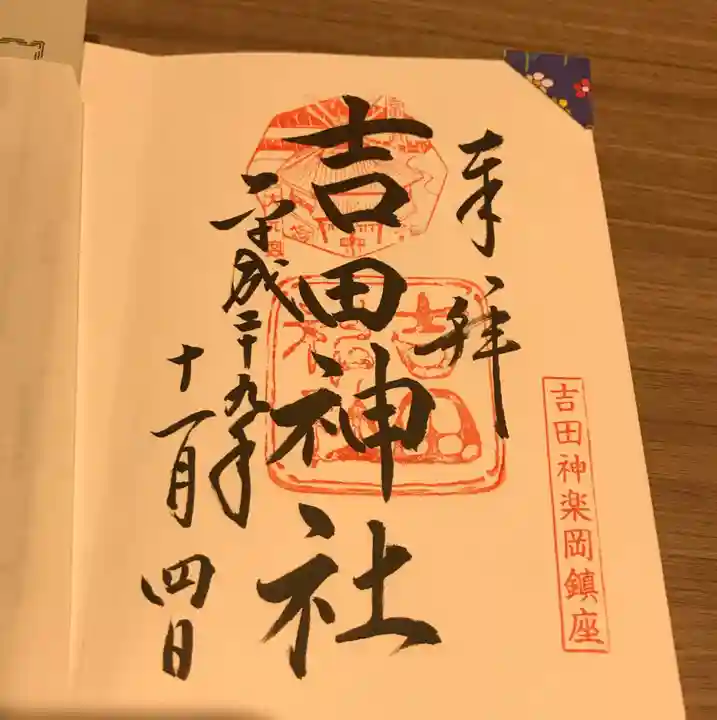 吉田神楽岡鎮座
奉拝
吉田神社
平成二十九年
十一月四日